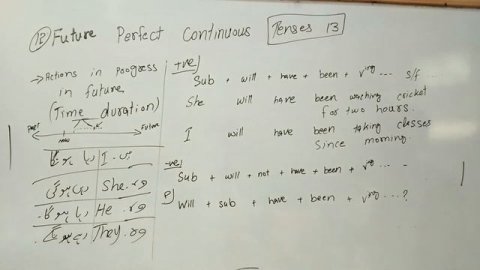 12 Future Perfect Continuous
Tenses 13
→ Actions in Poogress
in future.
(Time duration)
Past
now
Future
رہا ہوگا I. میں
She. وہ
رہا ہوگا. He. وہ
They. وہ
+ve
Sub + will + have + been + Ving ... s/f...
She will have been watching cricket
for two hours.
I will have been taking classes
since morning.
-ve
Sub + will + not + have + been + v ... -
Will + sub + have + been + Ving ... ?